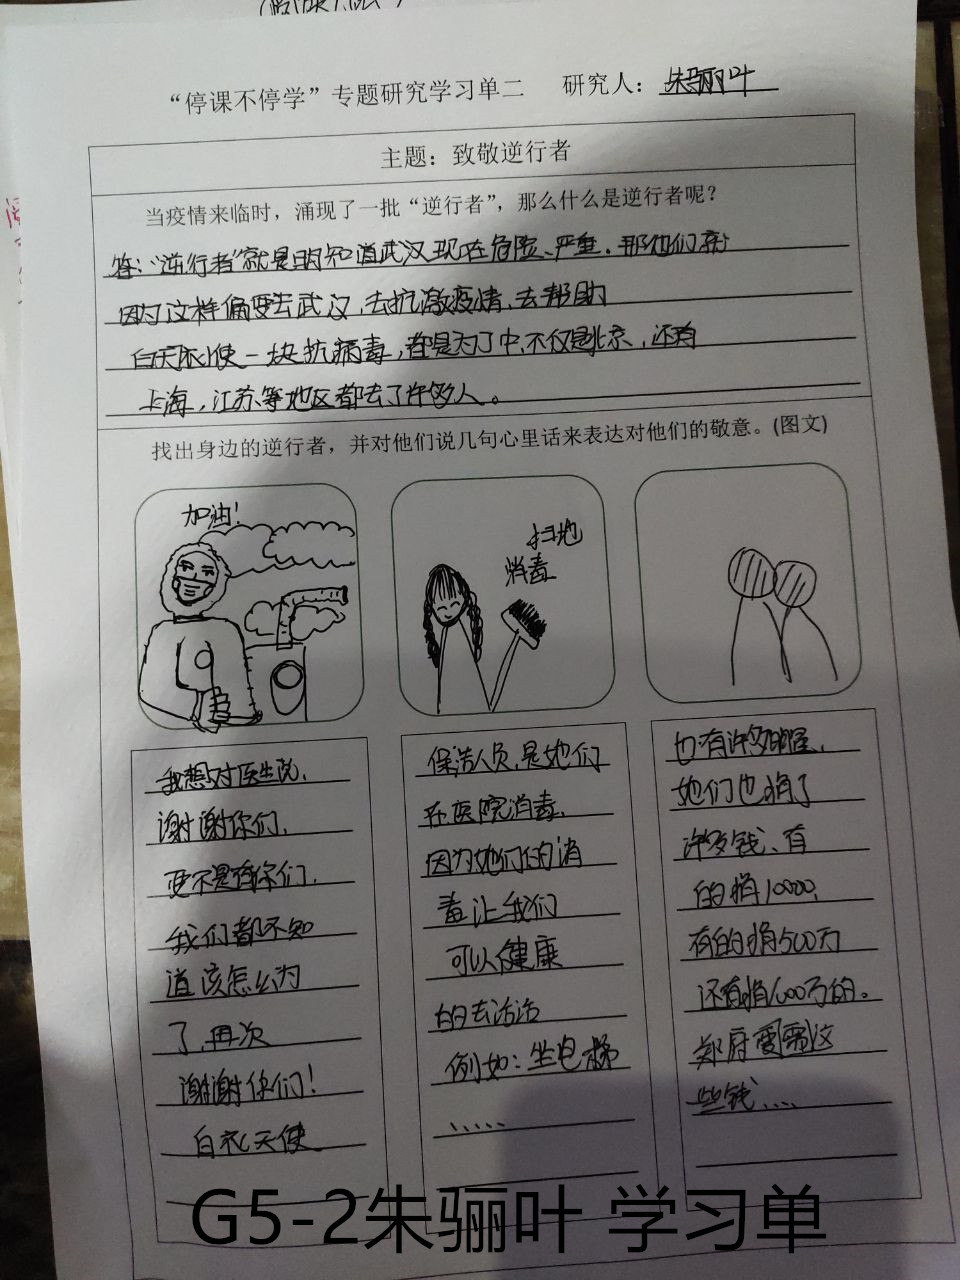 “停课不停学”专题研究学习单二 研究人：朱骊叶
主题：致敬逆行者
当疫情来临时，涌现了一批“逆行者”，那么什么是逆行者呢？
答：“逆行者”就是明知道武汉现在危险、严重，那他们
因为这样偏要去武汉，去抗激疫情，去帮助
白天衣使一块抗病毒，都是为了中，不仅是北京，还有
上海，江苏等地区都去了许多人。
找出身边的逆行者，并对他们说几句心里话来表达对他们的敬意。(图文)
加油！
扫地
消毒
我想对医生说，
谢谢你们，
要不是有你们，
我们都不知
道该怎么为
了，再次
谢谢你们！
白衣天使
保洁人员，是她们
在医院消毒，
因为她们的消
毒让我们
可以健康
的去活活
例如：坐电梯
......
也有许多明星，
她们也捐了
许多钱、有
的捐10000，
有的捐500万
还有捐1000万的。
政府要需这
些钱....
G5-2朱骊叶 学习单